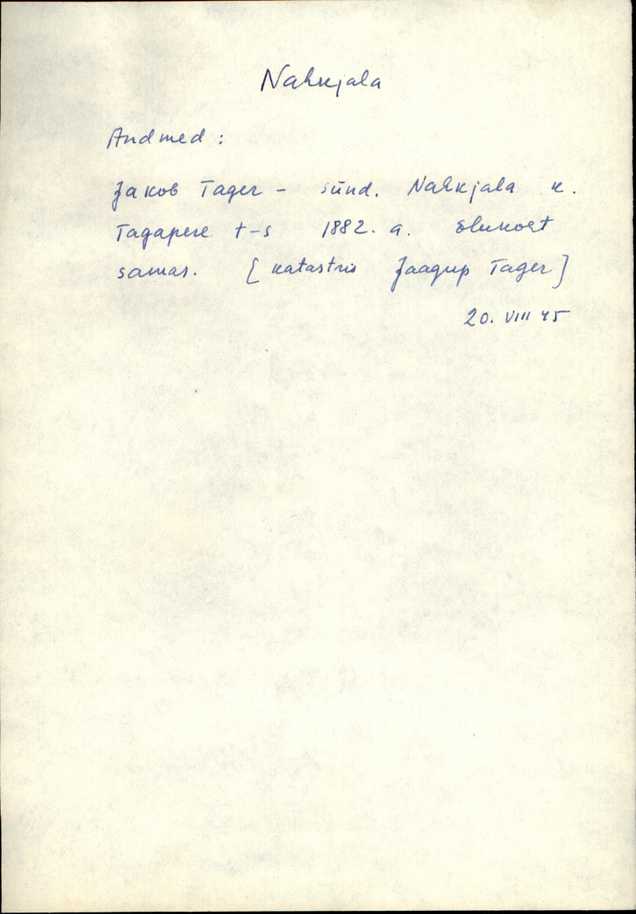 Nahkjala
Andmed :
Jakob Tager – sünd. Nahkjala k.
Tagapere t-s 1882. a. Elukoht
samas. [katastris Jaagup Tager]
20. VIII 45